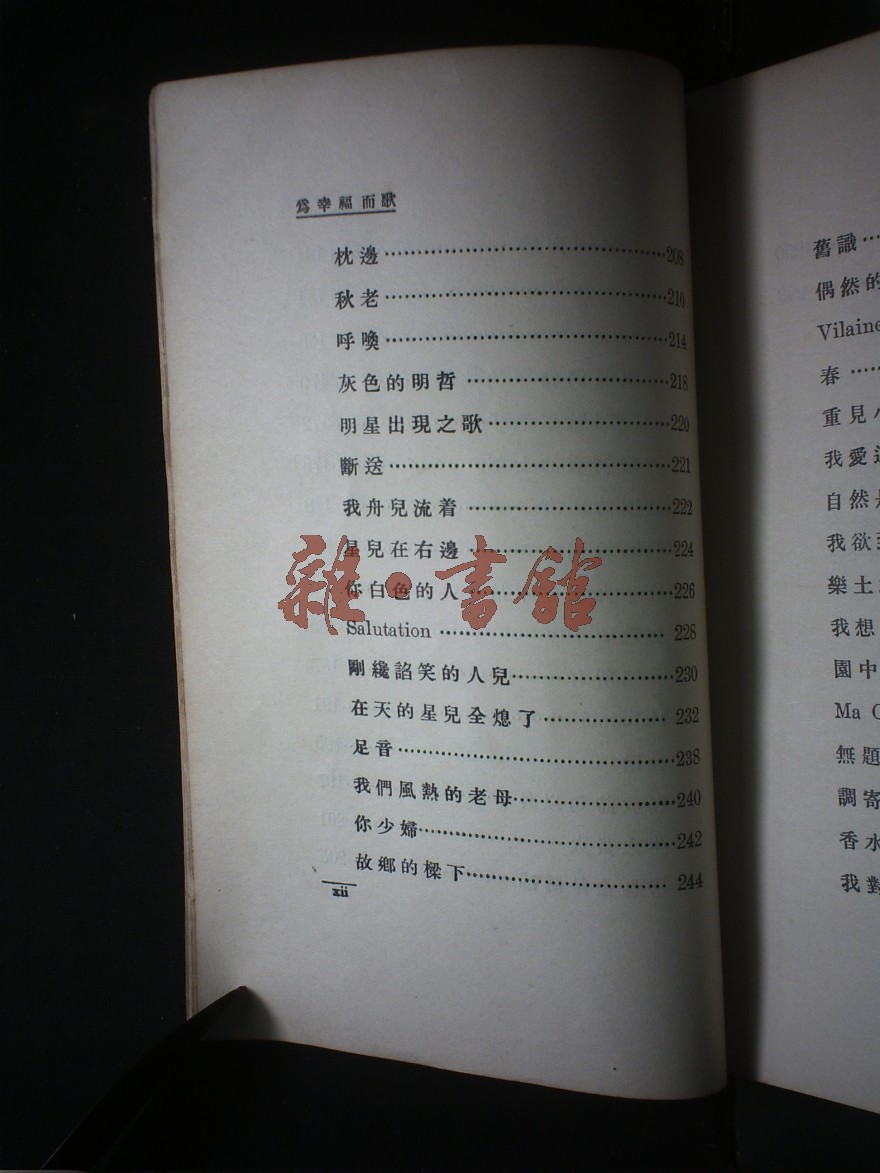 爲幸福而歌
枕邊……208
秋老……210
呼喚……214
灰色的明哲……218
明星出現之歌……220
斷送……221
我舟兒流着……222
星兒在右邊……224
你白色的人……226
Salutation……228
剛纔諂笑的人兒……230
在天的星兒全熄了……232
足音……238
我們風熱的老母……240
你少婦……242
故鄉的樑下……244
xii
舊識…
偶然的
Vilaine
春……
重見
我愛
自然
我欲
樂土
我想
園中
Ma
無題
調寄
香水
我對
雜·書館